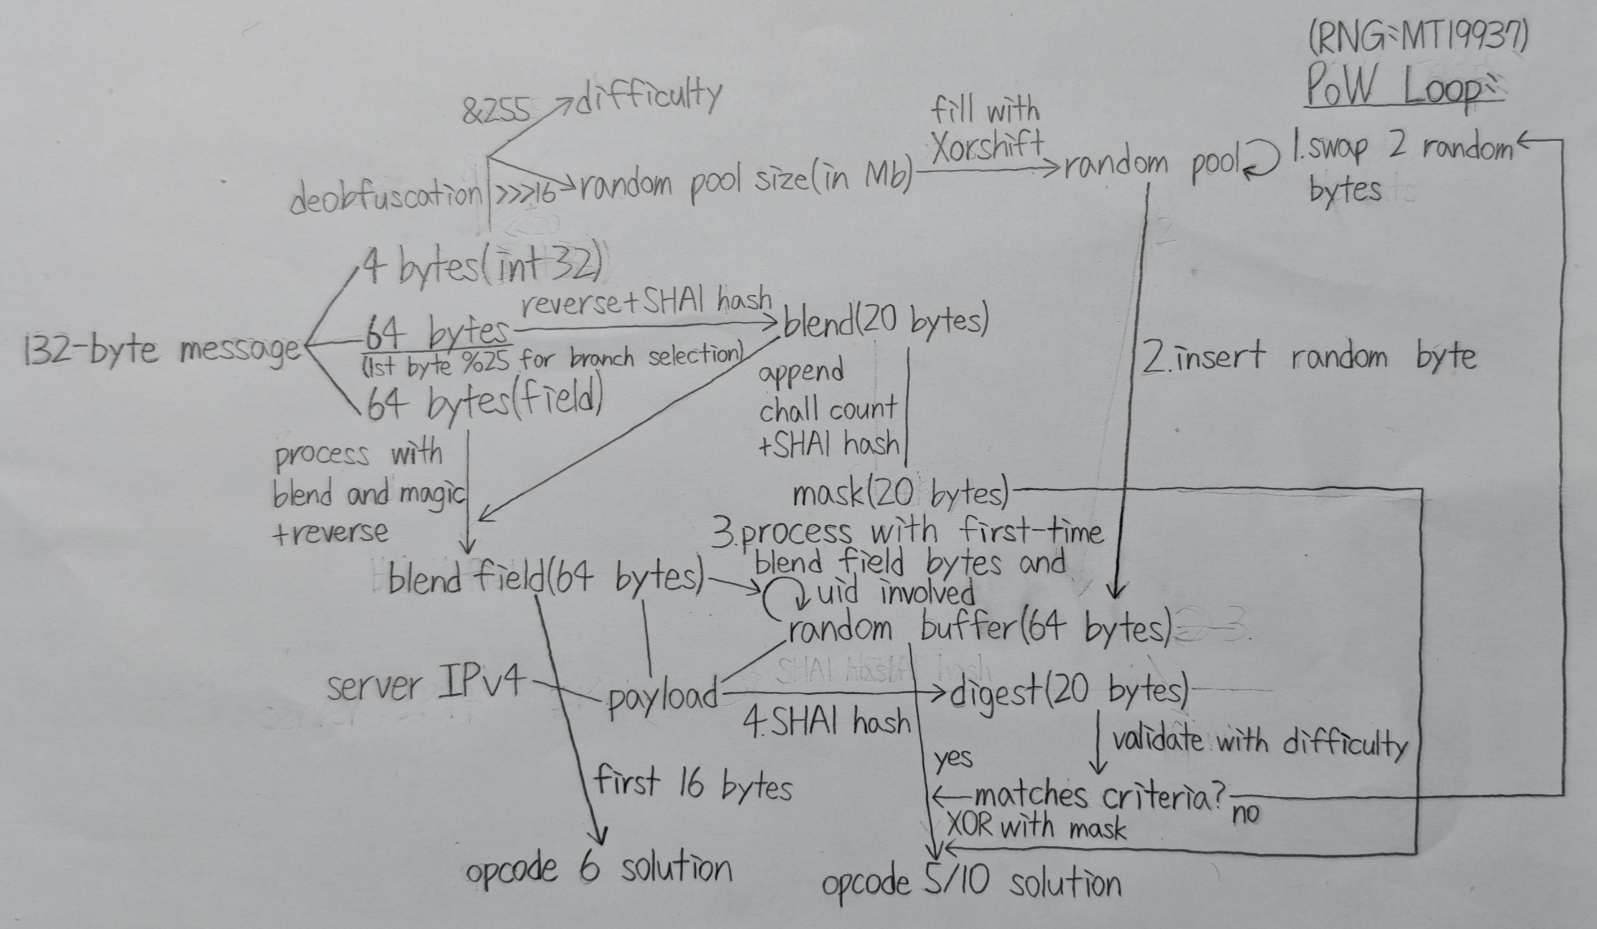 (RNG:MT19937)
PoW Loop:
&255
difficulty
fill with
Xorshift
deobfuscation
>>>16
random pool size(in Mb)
random pool
1.swap 2 random
bytes
4 bytes(int32)
reverse+SHA1 hash
132-byte message
64 bytes
(1st byte %25 for branch selection)
blend(20 bytes)
64 bytes(field)
2.insert random byte
append
chall count
+SHA1 hash
process with
blend and magic
+reverse
mask(20 bytes)
3.process with first-time
blend field bytes and
uid involved
blend field(64 bytes)
random buffer(64 bytes)
server IPv4
payload
4.SHA1 hash
digest(20 bytes)
validate with difficulty
first 16 bytes
yes
matches criteria?
no
XOR with mask
opcode 6 solution
opcode 5/10 solution